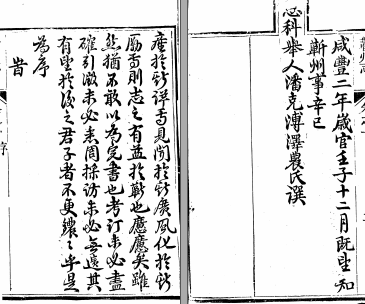 產於斯詳焉見聞於斯廣風化於斯
勵焉則志之有益於蘄也矣雖
然猶不敢以為完書也考訂未必盡
確引徵未必悉周採訪未必無遺其
有望於後之君子者不更乎是
為序
旹
咸豐二年歲官壬子十二月既望知
蘄州事辛巳
恩科舉人潘克溥澤農氏譔
序